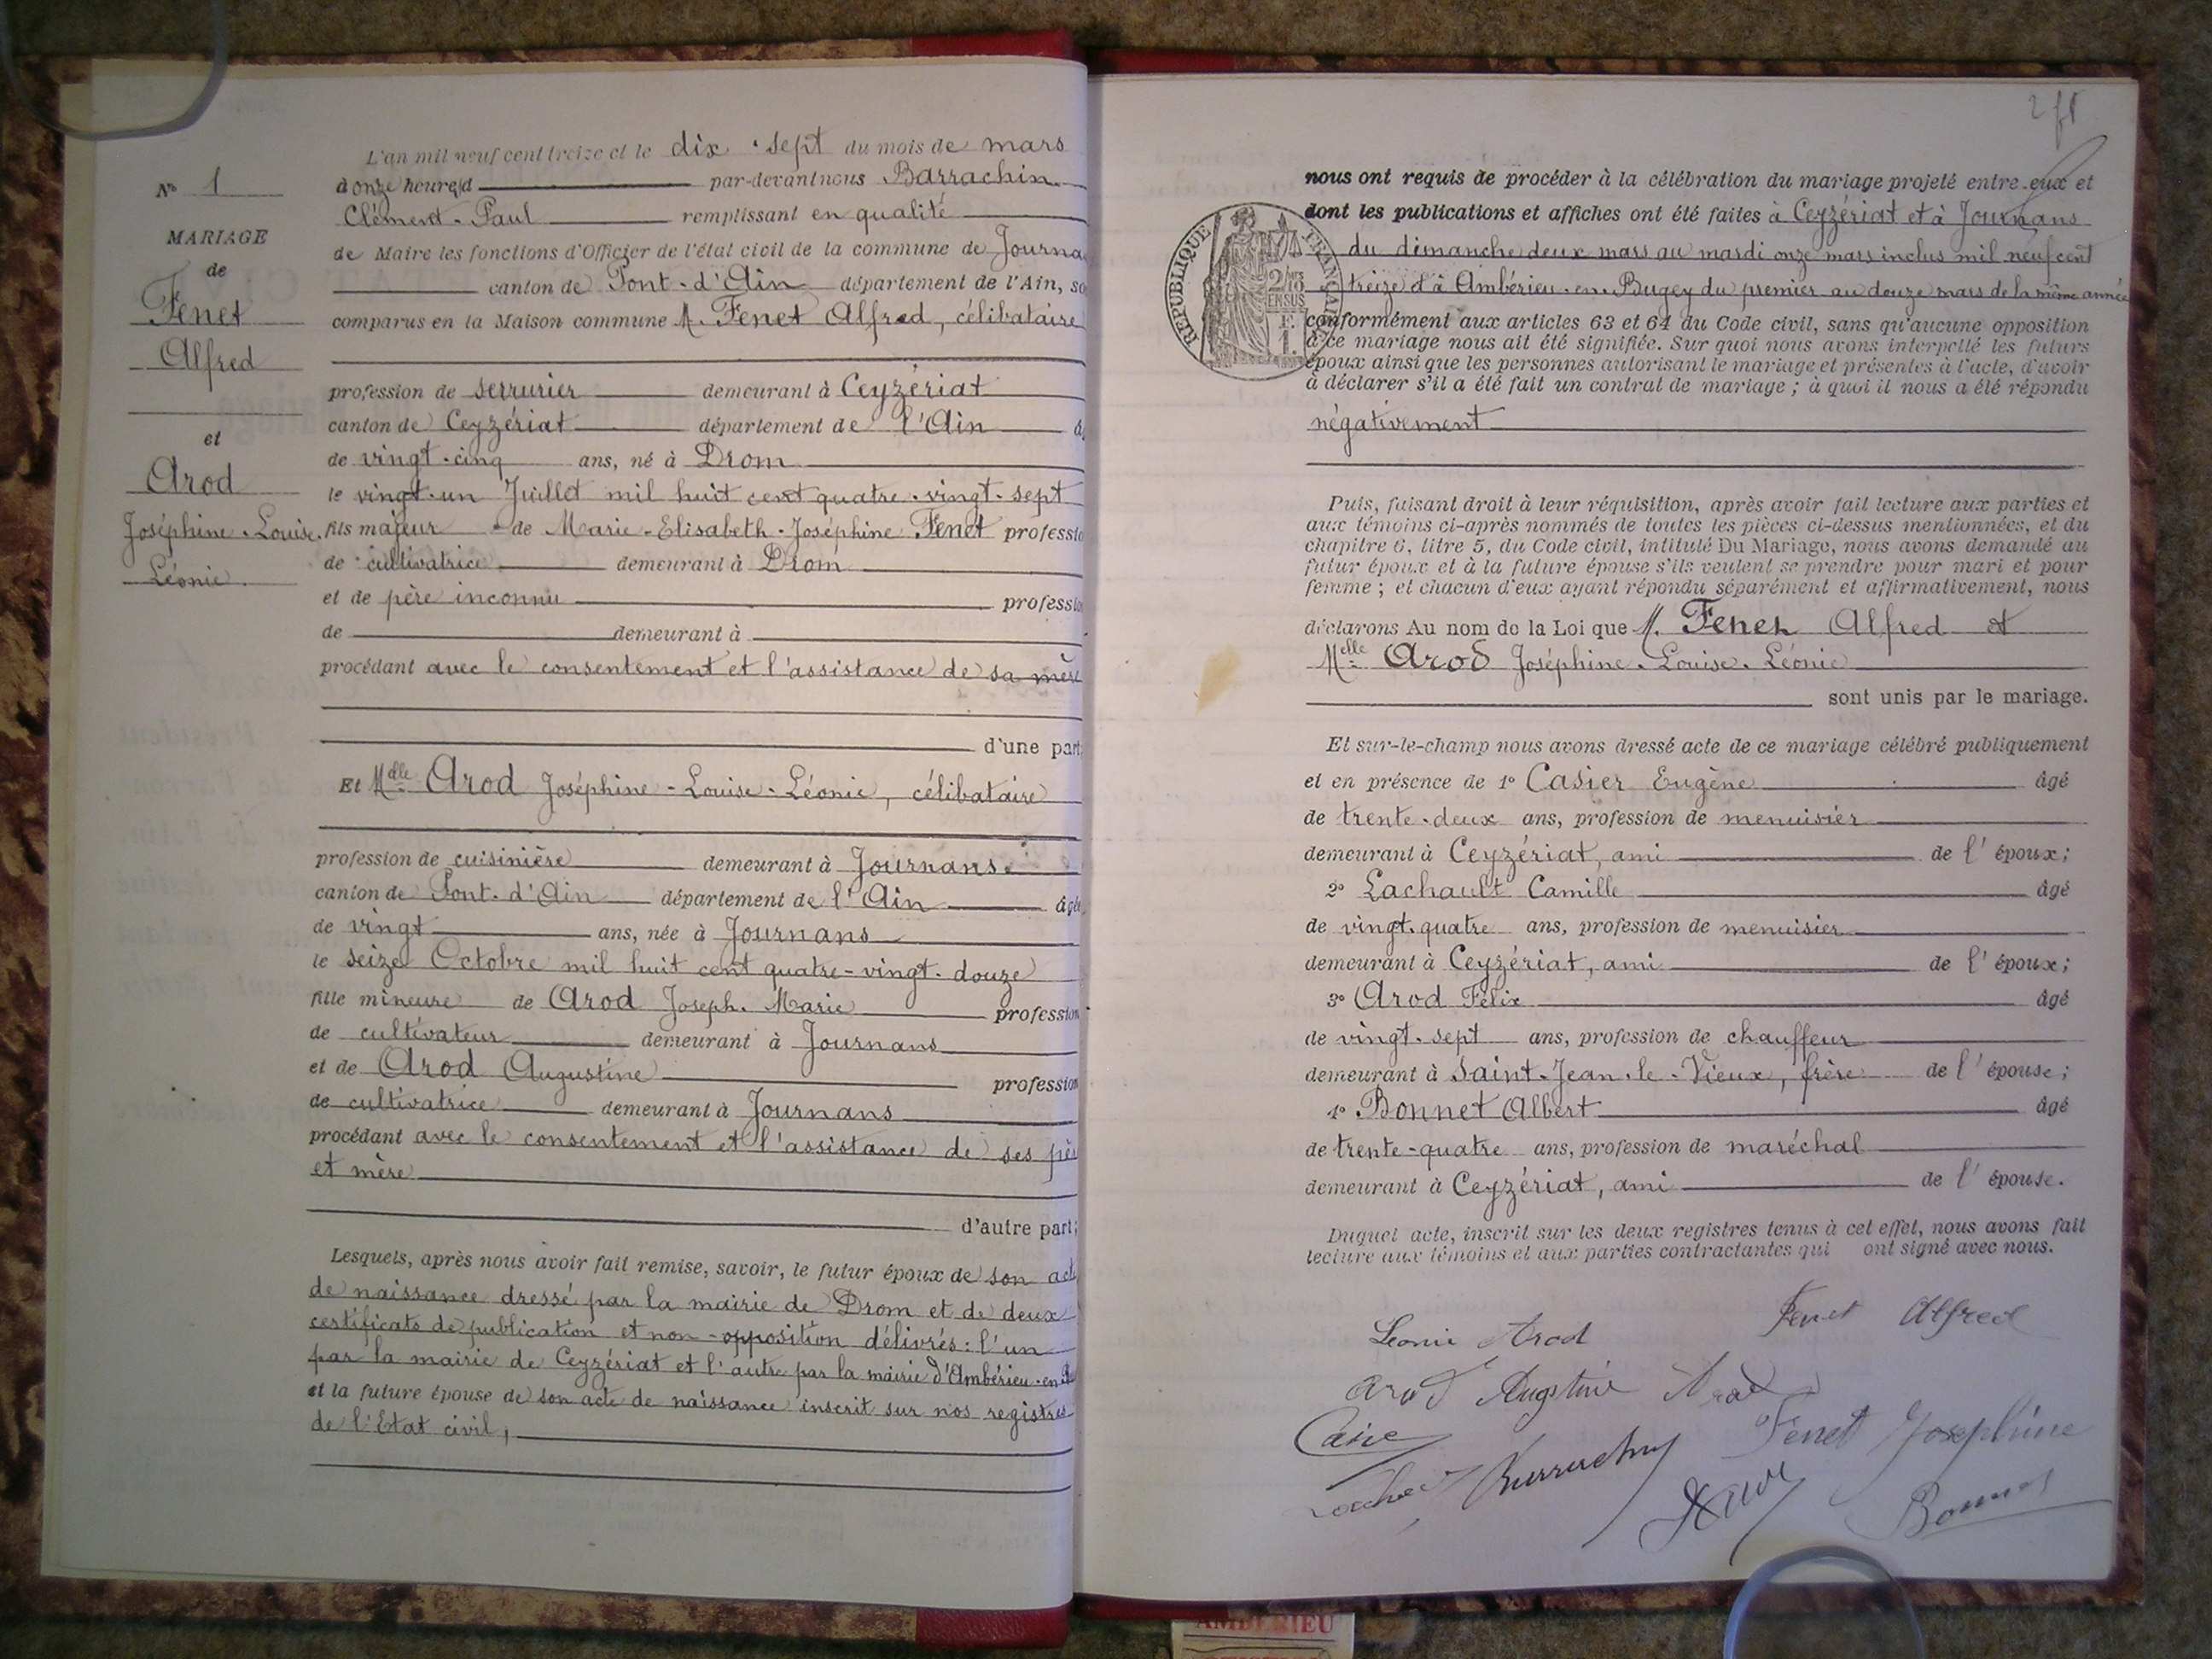 N° 1
MARIAGE
de
Fenet
Alfred
et
Arod
Joséphine-Louise-
Léonie.
L'an mil neuf cent treize et le dix-sept du mois de mars
à onze heures par-devant nous Barrachin
Clément-Paul remplissant en qualité
de Maire les fonctions d'Officier de l'état civil de la commune de Journa
canton de Pont-d'Ain département de l'Ain, so
comparus en la Maison commune M. Fenet Alfred, célibataire
profession de serrurier demeurant à Ceyzériat
canton de Ceyzériat département de l'Ain â
de vingt-cinq ans, né à Drom
le vingt-un Juillet mil huit cent quatre-vingt-sept
fils majeur de Marie-Elisabeth-Joséphine Fenet professio
de cultivatrice demeurant à Drom
et de père inconnu professio
de demeurant à
procédant avec le consentement et l'assistance de sa mère
d'une part
Et Mdlle Arod Joséphine-Louise-Léonie, célibataire
profession de cuisinière demeurant à Journans
canton de Pont-d'Ain département de l'Ain âgée
de vingt ans, née à Journans
le seize Octobre mil huit cent quatre-vingt-douze
fille mineure de Arod Joseph-Marie profession
de cultivateur demeurant à Journans
et de Arod Augustine profession
de cultivatrice demeurant à Journans
procédant avec le consentement et l'assistance de ses pè
et mère
d'autre part;
Lesquels, après nous avoir fait remise, savoir, le futur époux de son acte
de naissance dressé par la mairie de Drom et de deux
certificats de publication et non-opposition délivrés: l'un
par la mairie de Ceyzériat et l'autre par la mairie d'Ambérieu-en-B
et la future épouse de son acte de naissance inscrit sur nos registres
de l'Etat civil,
nous ont requis de procéder à la célébration du mariage projeté entre eux et
dont les publications et affiches ont été faites à Ceyzériat et à Journans
du dimanche deux mars au mardi onze mars inclus mil neuf cent
treize et à Ambérieu-en-Bugey du premier au douze mars de la même année
conformément aux articles 63 et 64 du Code civil, sans qu'aucune opposition
à ce mariage nous ait été signifiée. Sur quoi nous avons interpellé les futurs
époux ainsi que les personnes autorisant le mariage et présentes à l'acte, d'avoir
à déclarer s'il a été fait un contrat de mariage ; à quoi il nous a été répondu
négativement
REPUBLIQUE FRANÇAISE
2/10 EN SUS
1 F.
Puis, faisant droit à leur réquisition, après avoir fait lecture aux parties et
aux témoins ci-après nommés de toutes les pièces ci-dessus mentionnées, et du
chapitre 6, titre 5, du Code civil, intitulé Du Mariage, nous avons demandé au
futur époux et à la future épouse s'ils veulent se prendre pour mari et pour
femme ; et chacun d'eux ayant répondu séparément et affirmativement, nous
déclarons Au nom de la Loi que M. Fenet Alfred et
Melle Arod Joséphine-Louise-Léonie
sont unis par le mariage.
Et sur-le-champ nous avons dressé acte de ce mariage célébré publiquement
et en présence de 1° Casier Eugène âgé
de trente-deux ans, profession de menuisier
demeurant à Ceyzériat, ami de l'époux;
2° Lachault Camille âgé
de vingt-quatre ans, profession de menuisier
demeurant à Ceyzériat, ami de l'époux;
3° Arod Félix âgé
de vingt-sept ans, profession de chauffeur
demeurant à Saint-Jean-le-Vieux, frère de l'épouse;
4° Bonnet Albert âgé
de trente-quatre ans, profession de maréchal
demeurant à Ceyzériat, ami de l'épouse.
Duquel acte, inscrit sur les deux registres tenus à cet effet, nous avons fait
lecture aux témoins et aux parties contractantes qui ont signé avec nous.
Leonie Arod Fenet Alfred
Arod Augstine Arod
Fenet Josephine
Barrachin
AMBERIEU